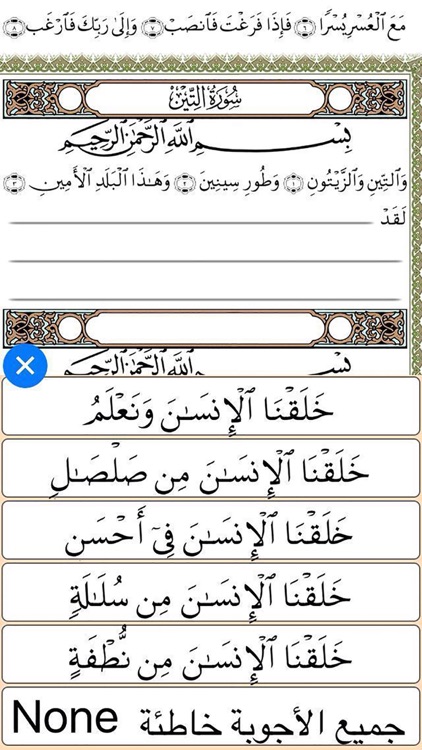 مَعَ ٱلْعُسْرِ يُسْرًا ٦ فَإِذَا فَرَغْتَ فَٱنصَبْ ٧ وَإِلَىٰ رَبِّكَ فَٱرْغَب ٨
سُورَةُ التِّينِ
بِسْمِ ٱللَّهِ ٱلرَّحْمَٰنِ ٱلرَّحِيمِ
وَٱلتِّينِ وَٱلزَّيْتُونِ ١ وَطُورِ سِينِينَ ٢ وَهَٰذَا ٱلْبَلَدِ ٱلْأَمِينِ ٣
لَقَدْ
بِسْمِ ٱللَّهِ ٱلرَّحْمَٰنِ ٱلرَّحِيمِ
خَلَقْنَا ٱلْإِنسَٰنَ وَنَعْلَمُ
خَلَقْنَا ٱلْإِنسَٰنَ مِن صَلْصَٰلٍ
خَلَقْنَا ٱلْإِنسَٰنَ فِىٓ أَحْسَنِ
خَلَقْنَا ٱلْإِنسَٰنَ مِن سُلَٰلَةٍ
خَلَقْنَا ٱلْإِنسَٰنَ مِن نُّطْفَةٍ
جميع الأجوبة خاطئة None